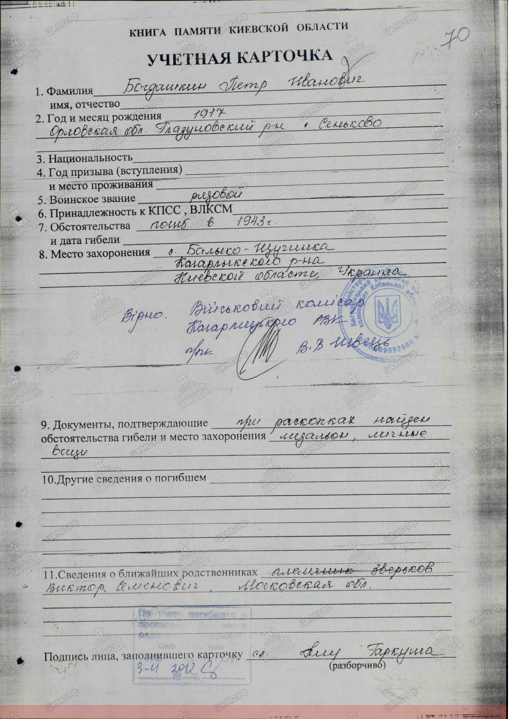 70
КНИГА ПАМЯТИ КИЕВСКОЙ ОБЛАСТИ
УЧЕТНАЯ КАРТОЧКА
1. Фамилия Богдашкин Петр Иванович
имя, отчество
2. Год и месяц рождения 1917
Орловская обл. Глазуновский р-н с. Сеньково
3. Национальность
4. Год призыва (вступления)
и место проживания
5. Воинское звание рядовой
6. Принадлежность к КПСС , ВЛКСМ
7. Обстоятельства погиб в 1943г.
и дата гибели
8. Место захоронения с. Балыко-Щучинка
Кагарлыкского р-на
Киевской области, Украина
Вірно. Військовий комісар
Кагарлицького РВК
В.В Швець
9. Документы, подтверждающие при раскопках найден
обстоятельства гибели и место захоронения медальон, личные
вещи
10.Другие сведения о погибшем
11.Сведения о ближайших родственниках племянник Зверьков
Виктор Семенович, Московская обл.
погибшего
Подпись лица, заполнившего карточку Гаркуша
(разборчиво)
2012